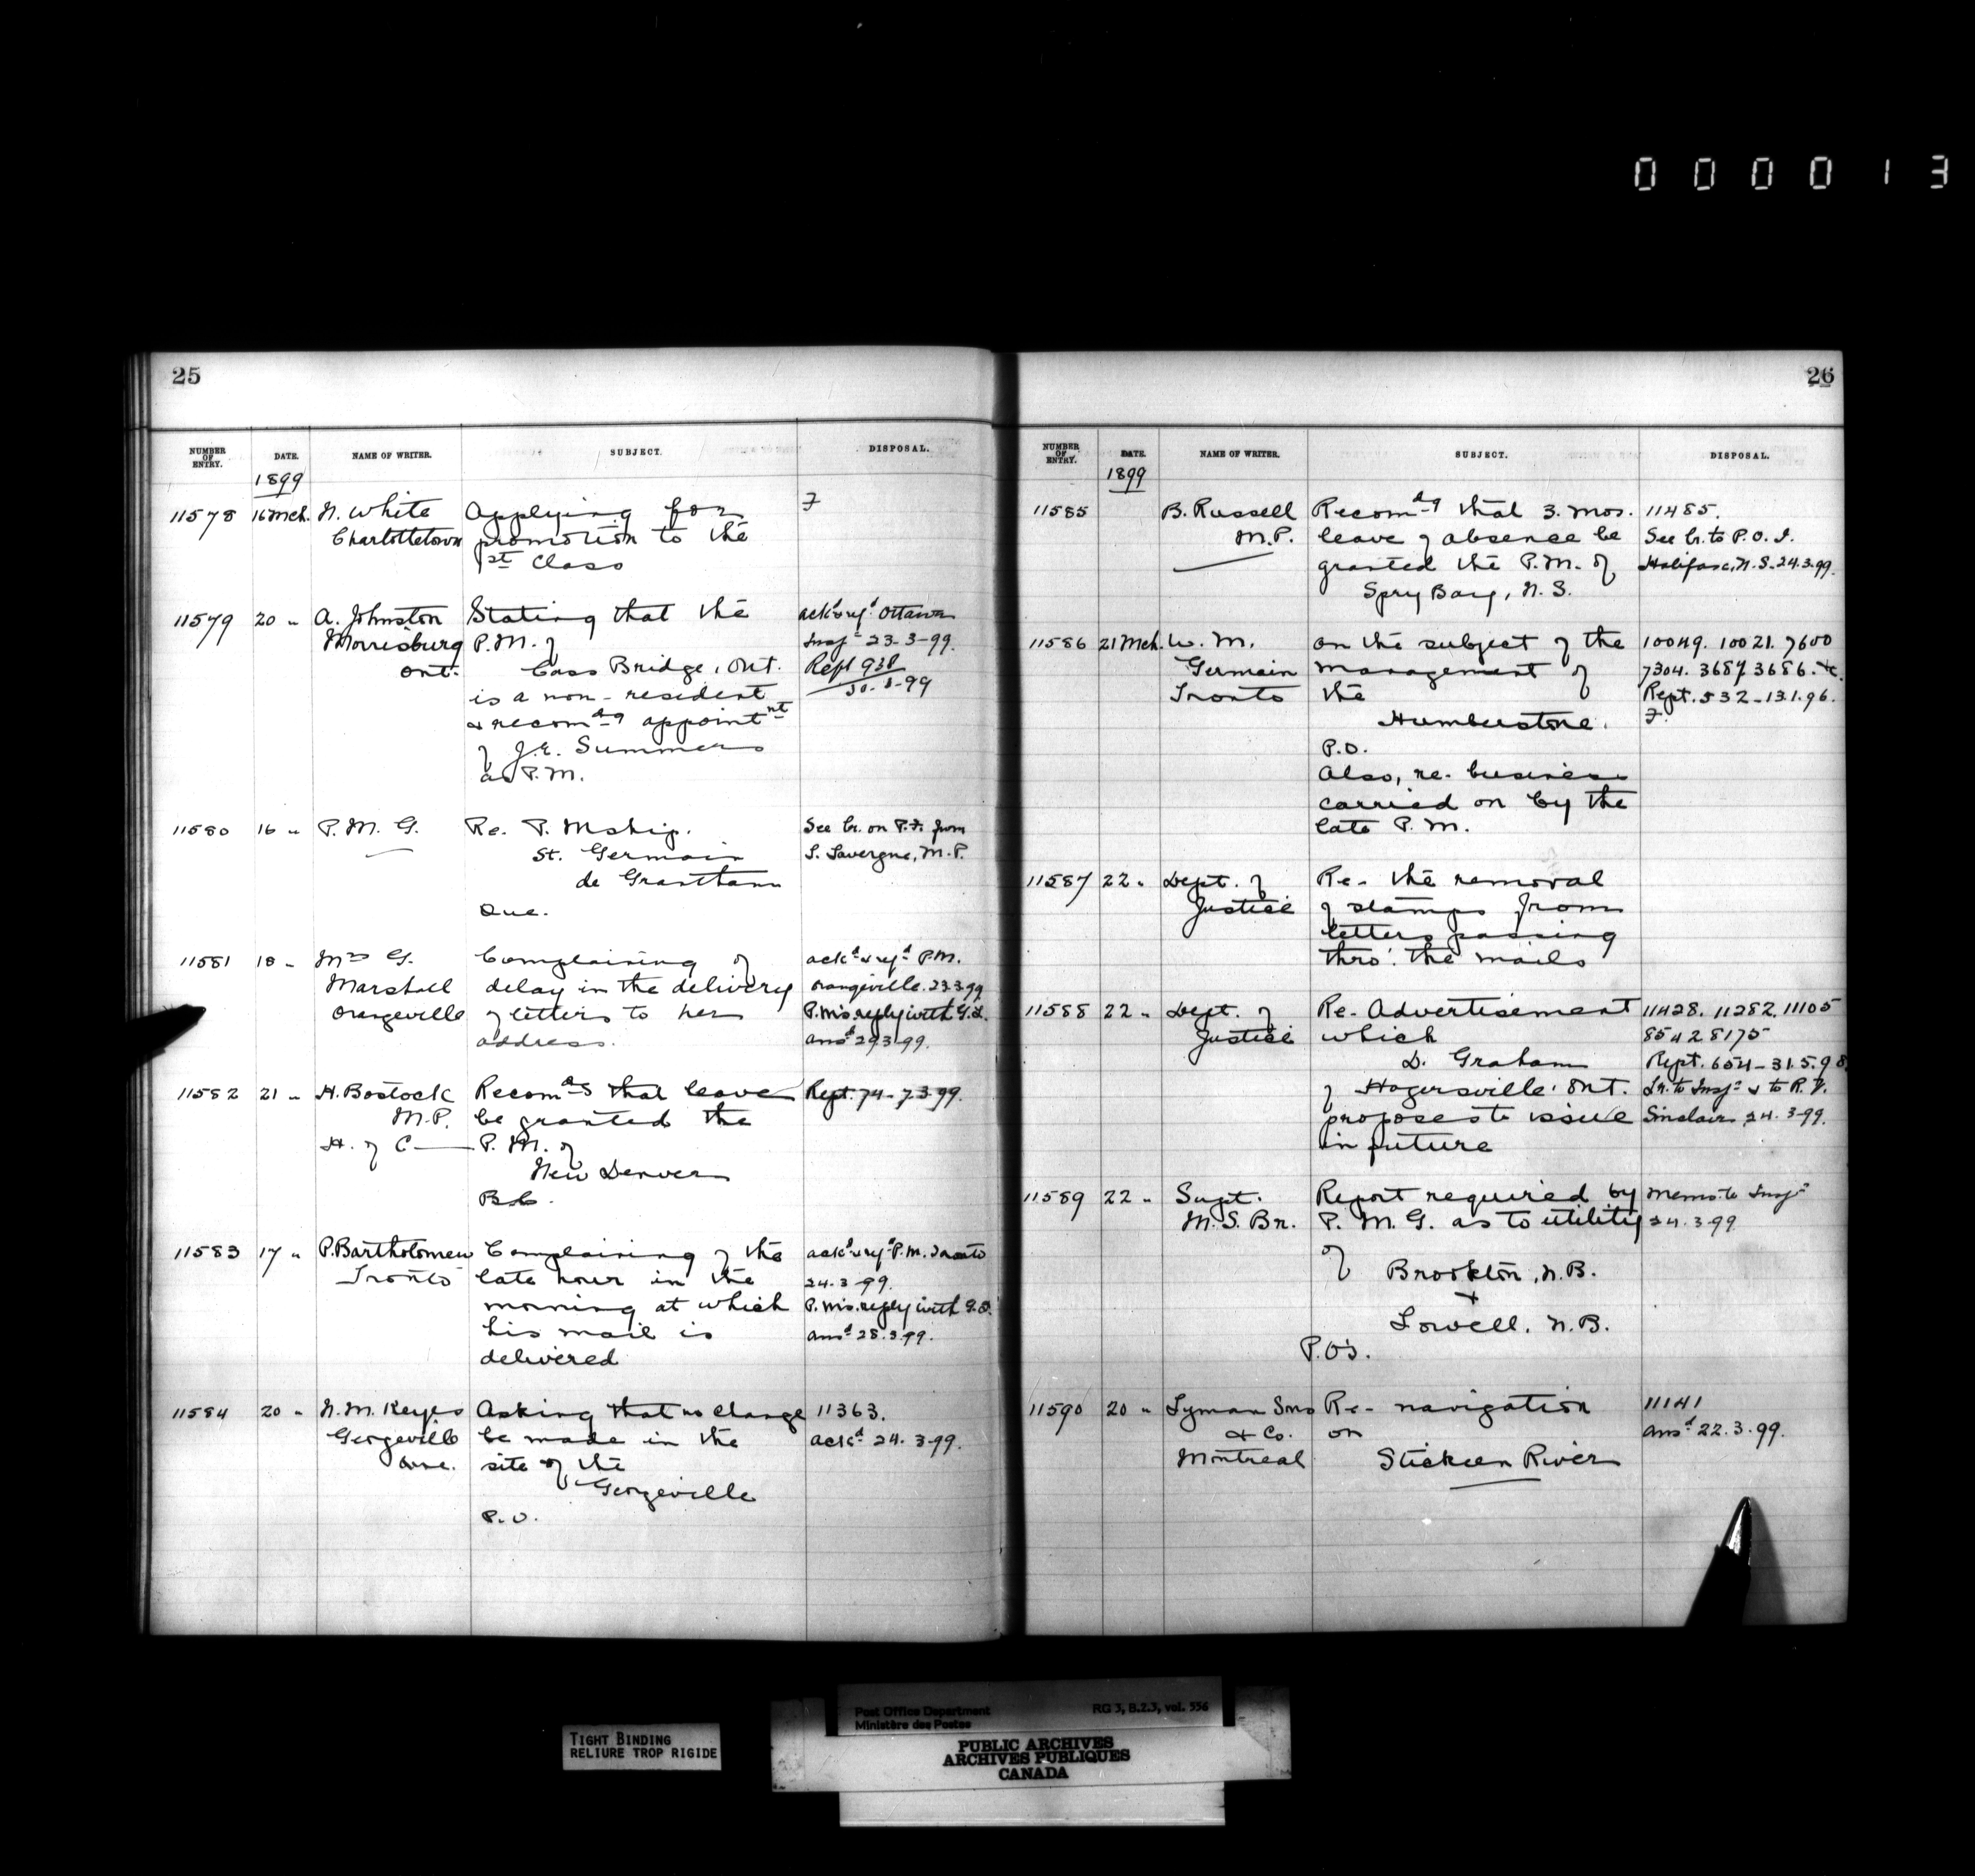 000013
25
NUMBER OF ENTRY. DATE. NAME OF WRITER. SUBJECT. DISPOSAL.
1899
11578 16 Mch. N. White Applying for F
Charlottetown promotion to the
1st Class
11579 20 " A. Johnston Stating that the ackd & refd Ottawa
Morrisburg P.M. of Inspr 23-3-99.
Ont. Cass Bridge, Ont. Rept 938
is a non-resident 30-3-99
& recomdg appointnt
of J.E. Summers
as P.M.
11580 16 " P. M. G. Re. P. Mship. See lr. on P.F. from
St. Germain L. Lavergne, M.P.
de Grantham
Que.
11581 18 " Mrs G. Complaining of ackd & refd P.M.
Marshall delay in the delivery Orangeville. 23.3.99
Orangeville of letters to her P.M's. reply with G.L.
address. ansd 29.3.99.
11582 21 " H. Bostock Recomds that leave Rept. 74-7.3.99.
M.P. be granted the
H. of C P. M. of
New Denver
B.C.
11583 17 " P. Bartholomew Complaining of the ackd & refd P.M. Toronto
Toronto late hour in the 24.3.99.
morning at which P.M's. reply with G.L.
his mail is ansd 28.3.99.
delivered
11584 20 " N. M. Keyes Asking that no change 11363.
Georgeville be made in the ackd 24.3.99.
Que. site of the
Georgeville
P.O.
26
NUMBER OF ENTRY. DATE. NAME OF WRITER. SUBJECT. DISPOSAL.
1899
11585 B. Russell Recomdg that 3. mos. 11485.
M.P. leave of absence be See lr. to P.O.I.
granted the P.M. of Halifax, N.S. 24.3.99.
Spry Bay, N.S.
11586 21 Mch. W. M. on the subject of the 10049. 10021. 7600
Germain management of 7304. 3687 3686. &c.
Toronto the Rept. 532-13.1.96.
Humberstone. F.
P.O.
Also, re. business
carried on by the
late P.M.
11587 22 " Dept. of Re- the removal
Justice of stamps from
letters passing
thro'. the mails
11588 22 " Dept. of Re- Advertisement 11428. 11282. 11105
Justice which 8542 8175
D. Graham Rept. 654-31.5.98
of Hagersville. Ont. Lr. to Inspr & to R.V.
proposes to issue Sinclair. 24.3.99.
in future
11589 22 " Supt. Report required by Memo. to Inspr
M.S. Br. P. M. G. as to utility 24.3.99
of
Brookton, N.B.
+
Lowell, N.B.
P.O's.
11590 20 " Lyman Sons Re- navigation 11141
& Co. on ansd 22.3.99.
Montreal Stickeen River
TIGHT BINDING
RELIURE TROP RIGIDE
Post Office Department RG 3, B.2.3, vol. 556
Ministère des Postes
PUBLIC ARCHIVES
ARCHIVES PUBLIQUES
CANADA